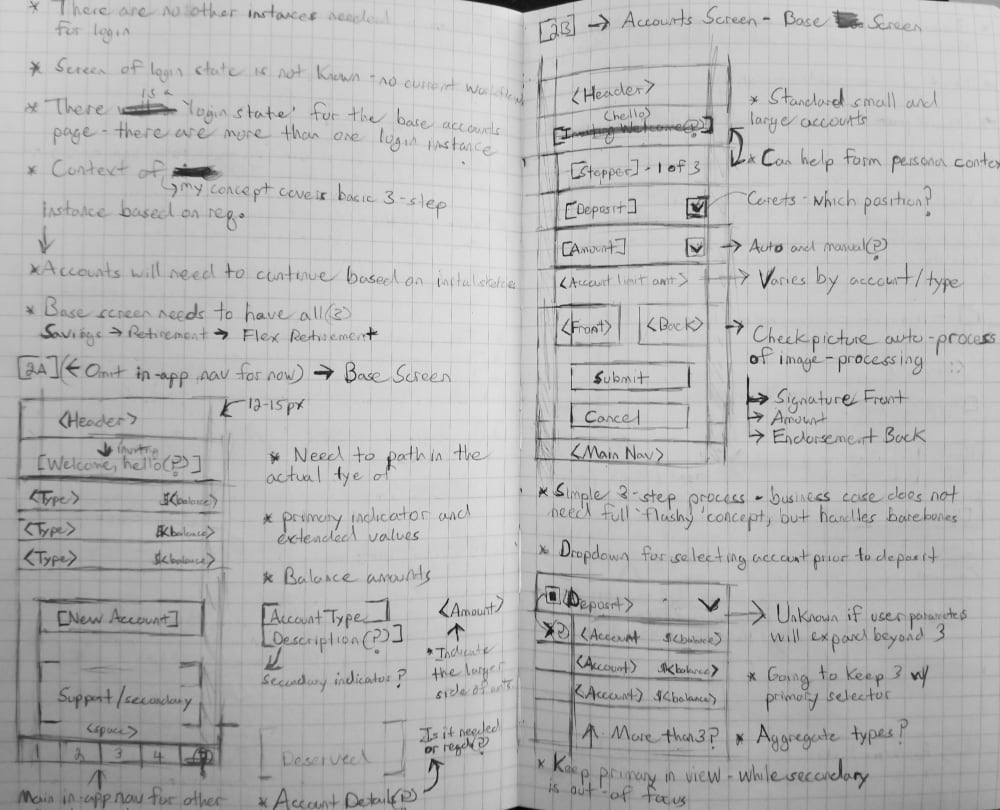 * There are no other instances needed
for login
* Screen of login state is not known - no current
* There is a 'login state' for the base accounts
page - there are more than one login instance
* Context of
my concept covers basic 3-step
instance based on req.
* Accounts will need to continue based on
* Base screen needs to have all(3)
Savings → Retirement → Flex Retirement
[2A] (← Omit in-app nav for now) → Base Screen
12-15px
<Header>
[Welcome, hello(?)]
<Type> $<balance>
<Type> $<balance>
<Type> $<balance>
[New Account]
Support/secondary
<space>
1 2 3 4
Main in-app nav for other
* Need to path in the
actual tye of
* primary indicator and
extended values
* Balance amounts
[Account Type
Description(?)]
secondary indicator?
<Amount>
* Indicate
the larger
side of
Deserved
Is it needed
or reqd(?)
* Account Details(?)
[2B] → Accounts Screen - Base Screen
<Header>
(hello)
[Inviting Welcome(?)]
[Stepper] - 1 of 3
[Deposit]
[Amount]
<Account limit amt>
<Front> <Back>
Submit
Cancel
<Main Nav>
* Standard small and
large accounts
* Can help form persona
Carets - which position?
→ Auto and manual(?)
→ Varies by account/type
→ Check picture auto-process
of image-processing
→ Signature/Front
→ Amount
→ Endorsement Back
* Simple 3-step process - business case does not
need full 'flashy' concept, but handles barebones
* Dropdown for selecting account prior to deposit
<Deposit>
<Account $<balance>
<Account> $<balance>
<Account> $<balance>
↑ More than 3?
→ Unknown if user parameters
will expand beyond 3
* Going to keep 3 w/
primary selector
* Aggregate types?
* Keep primary in view - while secondary
is out-of focus